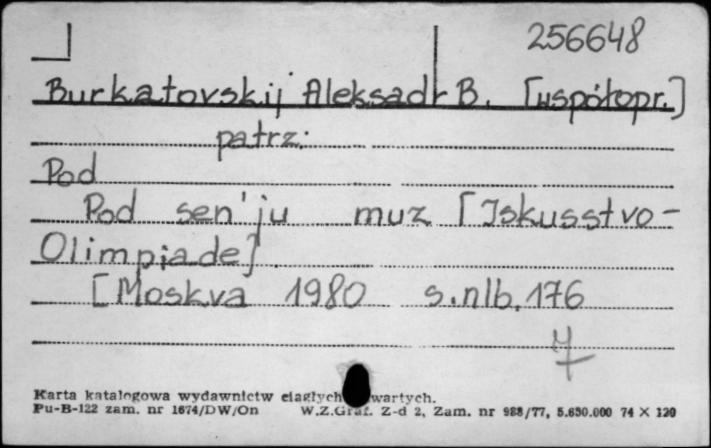 256648
Burkatovskij Aleksadr B. [współopr.]
patrz:
Pod
Pod sen'ju muz [Iskusstvo-
Olimpiade]
[Moskva 1980 s.nlb.176
Karta katalogowa wydawnictw ciągłych wartych.
Pu-B-122 zam. nr 1674/DW/On W.Z.Graf. Z-d 2, Zam. nr 988/77, 5.650.000 74 X 120